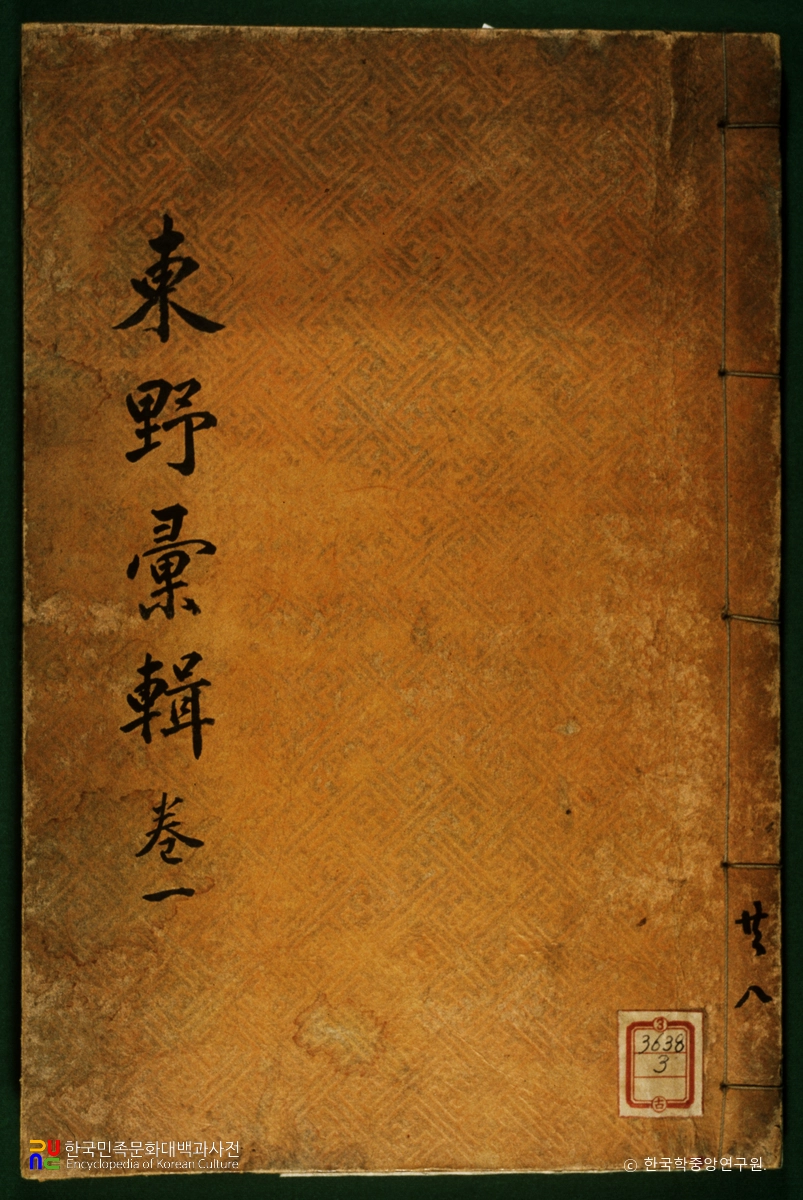 東野彙輯 卷一
共八
3638
3
古
한국민족문화대백과사전
Encyclopedia of Korean Culture
© 한국학중앙연구원.